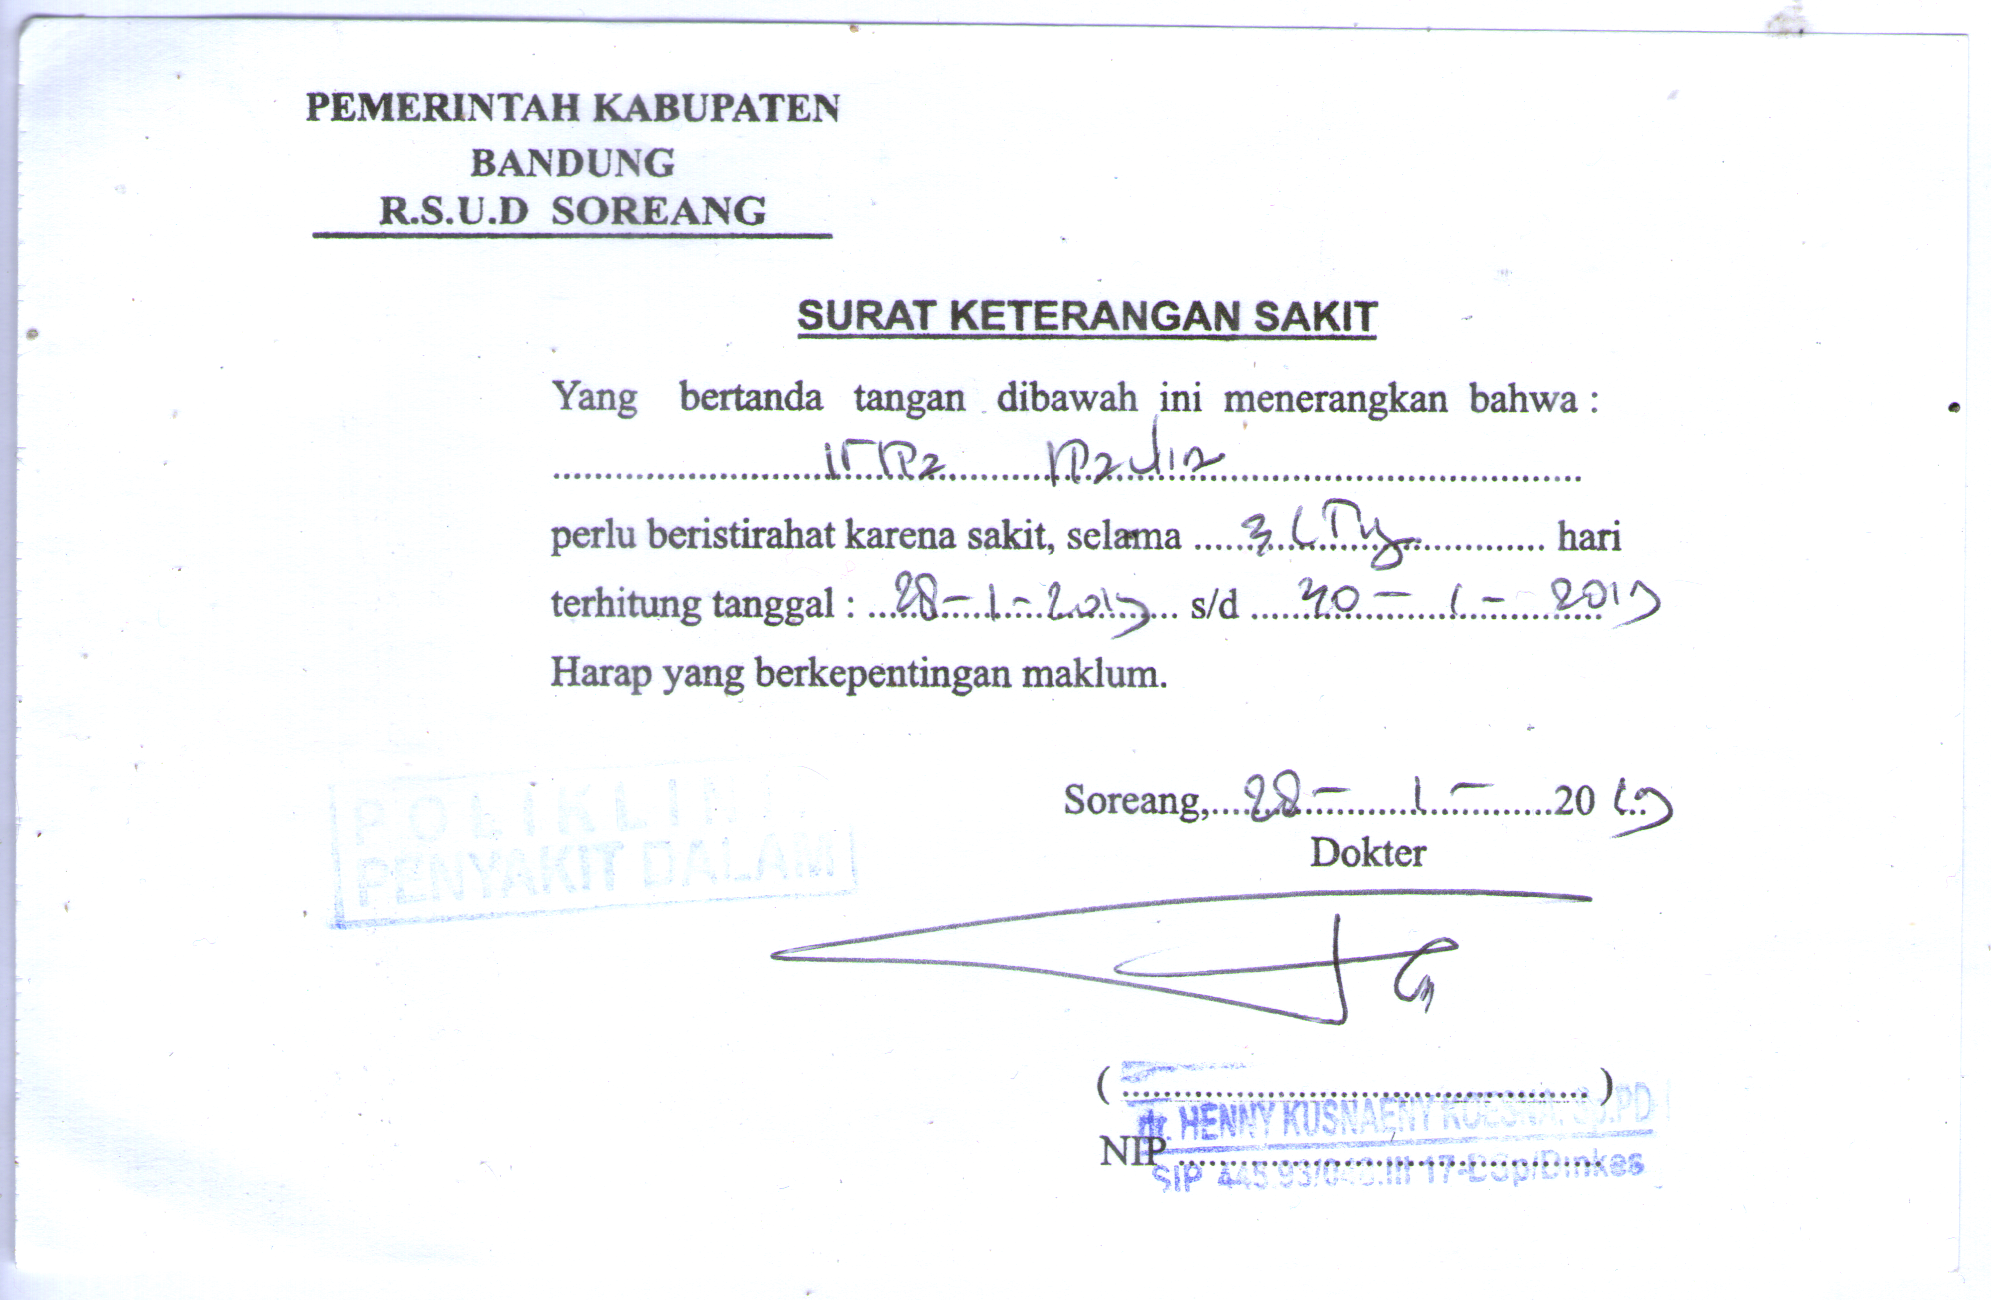 PEMERINTAH KABUPATEN
BANDUNG
R.S.U.D SOREANG
SURAT KETERANGAN SAKIT
Yang bertanda tangan dibawah ini menerangkan bahwa :
perlu beristirahat karena sakit, selama 3 hari
terhitung tanggal : 28-1-2019 s/d 30-1-2019
Harap yang berkepentingan maklum.
Soreang, 28-1-2019
Dokter
POLIKLINIK
PENYAKIT DALAM
( )
dr. HENNY KUSNAENY Sp.PD
NIP
SIP 445.93/ .III 17-DSp/Dinkes